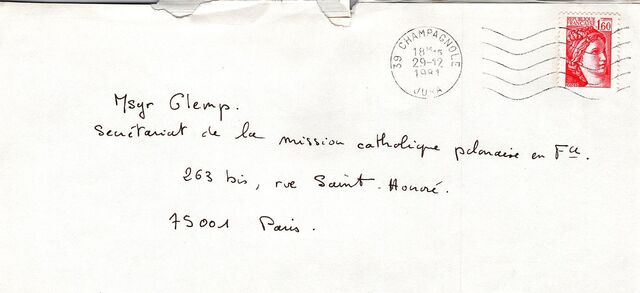 39 CHAMPAGNOLE
29-12
1981
JURA
REPUBLIQUE
FRANÇAISE
1,60
Msgr Glemp.
Secrétariat de la mission catholique polonaise en Fce.
263 bis, rue Saint-Honoré.
75001 Paris.